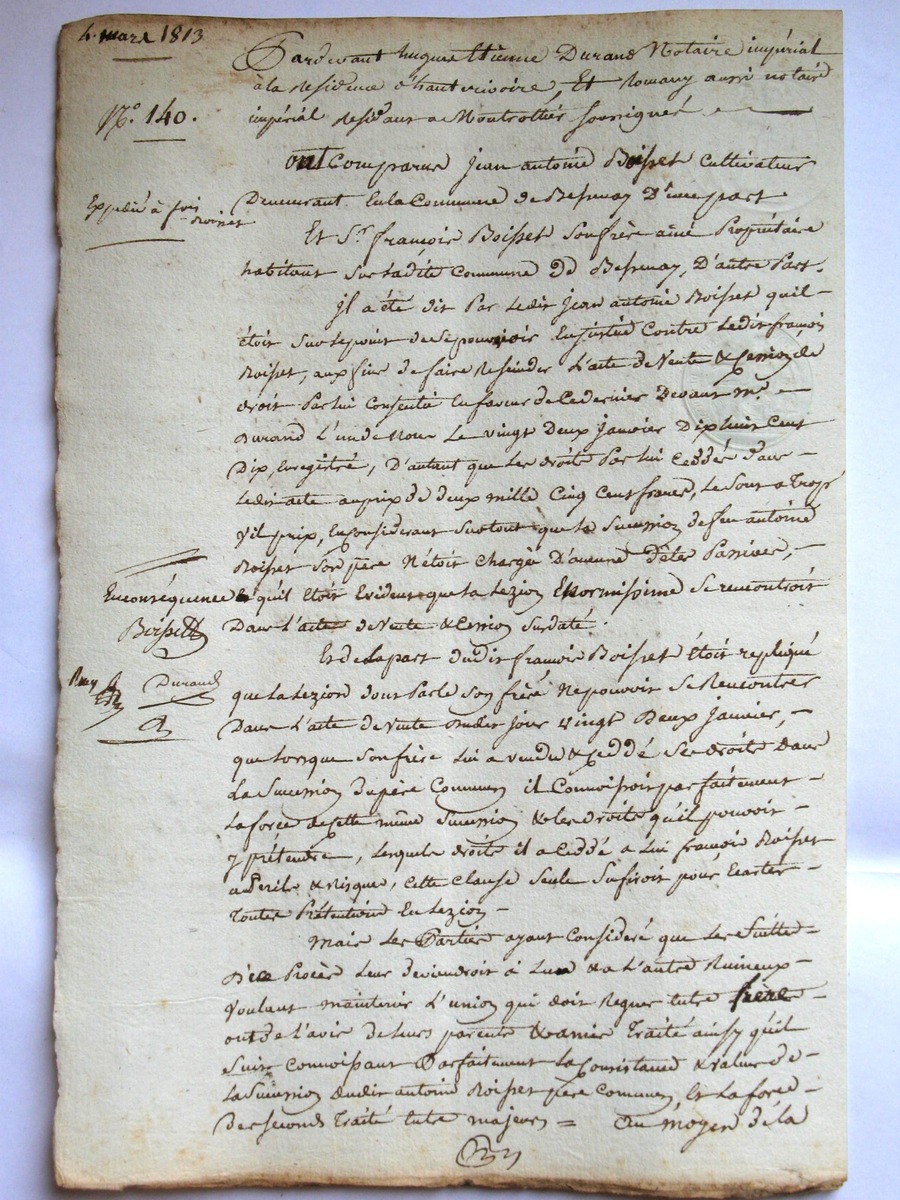 4. mars 1813
Pardevant hugues Etienne Durand Notaire impérial
à la Residence d'hauterivoire, Et Romany aussi notaire
N.° 140.
impérial Resid.t aux a Montrottier soussignés
ont Comparus Jean antoine Boisset Cultivateur
Expédié à fois
Boisset
Demeurant En la Commune de Bessenay D'une part
Et S.r françois Boisset son frère ainé Propriétaire
habitant sur ladite Commune de Bessenay, D'autre Part.
il a été dit Par ledit Jean antoine Boisset quil
étoit sur le point de se pourvoir En justice Contre ledit françois
Boisset, aux fins de faire Rescinder L'acte de Vente & Cession de
droit Par lui Consentie En faveur de Ce dernier Devant M.e
Durand L'un de Nous Le vingt Deux Janvier Dix huit Cent
Dix, Enregistré, D'autant que les droits Par lui Ceddés Dans
Ledit acte au prix de deux mille Cinq Cent francs, Le sont a Trop
Vil prix, En Considerant surtout que la Succession de feu antoine
Boisset son père N'étoit Chargée D'aucune Dètes Passives,
En conséquence
qu'il étoit Evident que la Lezion Enormissime se rencontroit
Boissett
Dans L'acte de Vente & Cession susdaté.
Et de la part dudit françois Boisset étoit repliqué
Durand
que la Lezion dont Parle son frère Ne pouvoit se Rencontrer
Dans L'acte de Vente dudit jour vingt Deux Janvier,
que lorsque son frère Lui a vendu & ceddé ses droits Dans
La Succession du père Commun il Connoissoit parfaitement
La force de cette même Succession & les droits qu'il pouvoit
y prétendre, lesquels droits il a Ceddé a Lui françois Boisset
a Périls & risques, Cette Clause seule sufiroit pour Ecarter
Toutes Prétentions En Lezion
Mais les Parties ayant Consideré que les suittes
D'un Procès leur deviendroit à L'un & a L'autre Ruineux
Voulant maintenir L'union qui doit Regner entre frères
ont de l'avis de leurs parents & amis Traité ainsy qu'il
suit, Connoissant Parfaitement la Consistance & valeur de
La Succession dudit antoine Boisset père Commun, Et la force
Des seconds Traités Entre majeurs = Au moyen de la